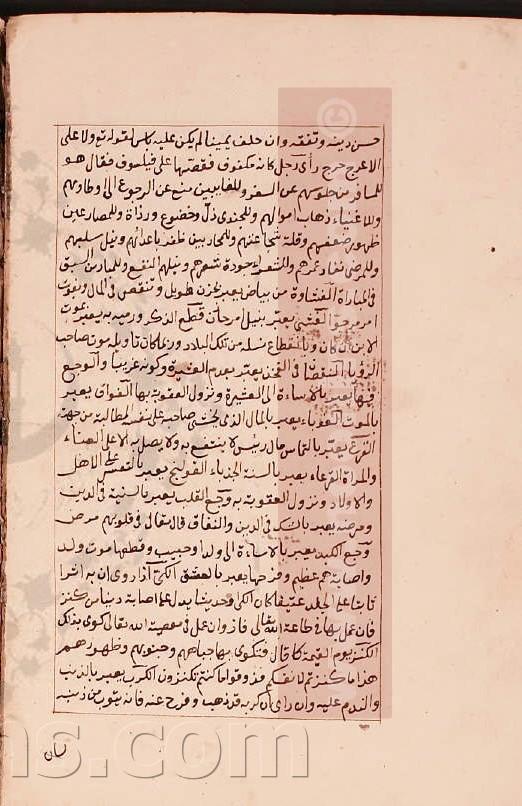 حسن دينه وتفقه وان حلف يمينا لم يكن عليه بأس لقوله تع ولا على
الاعرج حرج رأى رجل كانه مكفوف فقصها على فيلسوف فقال هو
للمسافر من جلوسهم عن السفر وللغايبين منع عن الرجوع الى وطاونهم
وللاغنياء ذهاب اموالهم وللجندى ذل وخضوع ورذاة وللمصارعين
ظهور ضعفهم وقلة شجاعتهم وللمحاربين ظفر باعدائهم ونيل سلبهم
وللمرضى نفاد عمرهم والشعراء جودة شعرهم ونيلهم النفع وللمارس السبق
فى المباراة الغشاوة من بياض يعبر بحزن طويل وتنقص فى المال وبفوت
امر مرجو الغشى يعبر بنيل امر حان قطع الذكر ورميه به يعبر بموت
الابن ان كان وبانقطاع نسله من تلك البلاد وربما كان تاويله موت صاحب
الرؤيا فى الفخذ يعبر بعدم العشيرة وكونه غريبا والوجع
فيها يعبر بالاساءة الى العشيرة ونزول العقوبة بها الفواق يعبر
بالموت يعبر بالمال الذى يخشى صاحبه على نفسه المطالبة من جهته
القرع يعبر بالتماس مال رئيس لا ينتفع به ولا يصل به الا على العناء
والمراة القرعاء يعبر بالسنة الجدباء القولنج يعبر بالتقتير على الاهل
والاولاد ونزول العقوبة به وجع القلب يعبر بالسنية فى الدين
ومرضه يعبر بالشك فى الدين والنفاق قال تعالى فى قلوبهم مرض
وجع الكبد يعبر بالاساءة الى ولد وحبيب وقطعها موت ولد
واصابة هم عظيم وقرحها يعبر بالعشق الكى اذا روى ان به اثرا
ثابتا على الجلد عتيقا كان الكى وحديثا يدل على اصابة دينا من كنز
فان عمل بها فى طاعة الله تعالى فاز وان عمل فى معصية الله تعالى كوى بذلك
الكنز يوم القيمة كما قال فتكوى بها جباههم وجنوبهم وظهورهم
هذا ما كنزتم لانفسكم فذوقوا ما كنتم تكنزون الكرب يعبر بالذنب
والندم عليه وان راى ان كربه قد ذهب وفرح عنه فانه يتوب من ذنبه
لسان
ns.com